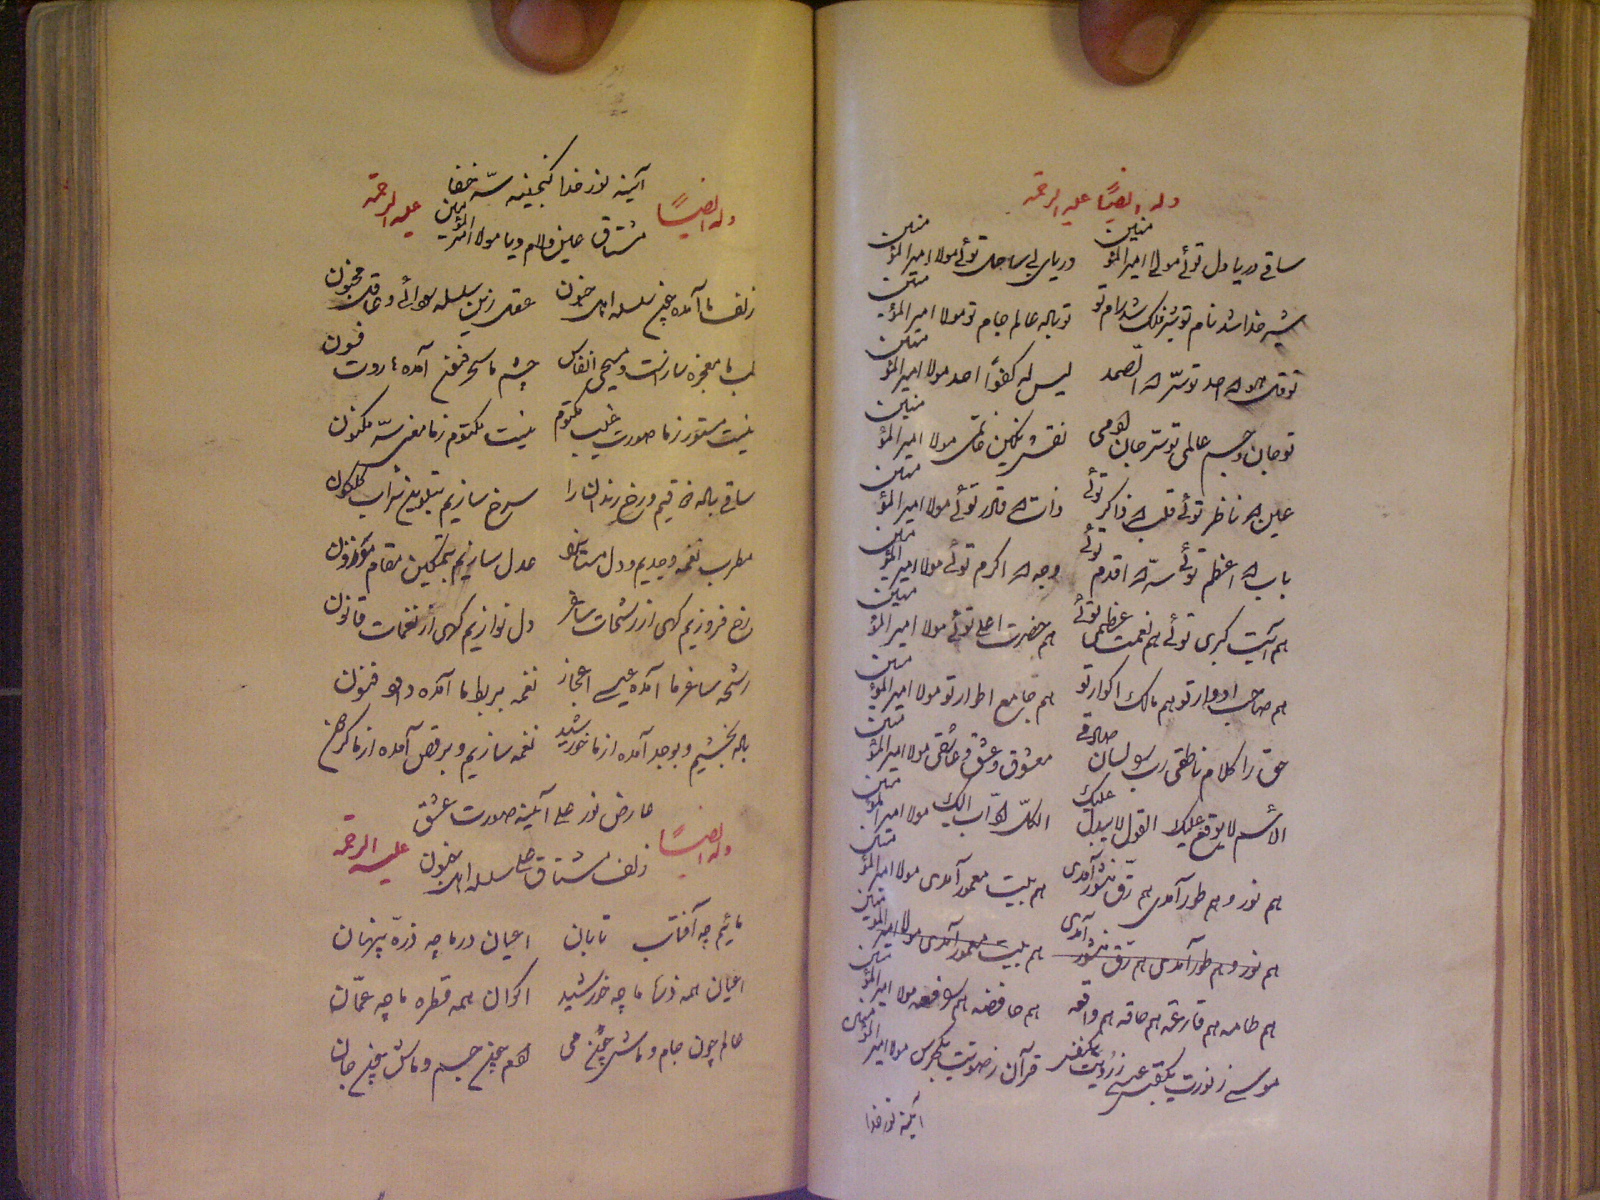 وله ایضاً علیه الرحمة
ساقی دریا دل توئے مولا امیر المؤمنین دریای بی ساحل توئے مولا امیر المؤمنین
شیر خدا شد نام تو شیر فلک شد رام تو تو باله عالم جام تو مولا امیر المؤمنین
احد تو سر الله الصمد لیس له کفواً احد مولا امیر المؤمنین
تو جان و جسم عالمی تو سر جان آدمی نقش نگین خاتمی مولا امیر المؤمنین
عین الله ناظر توئے قلب الله ذاکر توئے ذات الله قادر توئے مولا امیر المؤمنین
باب الله اعظم توئے سر الله اقدم توئے وجه الله اکرم توئے مولا امیر المؤمنین
هم آیت کبری توئے هم نعمت عظمی توئے هم حضرت اعلی توئے مولا امیر المؤمنین
هم صاحب ادوار تو هم مالک اکوار تو هم جامع اطوار تو مولا امیر المؤمنین
حق را کلام ناطقی رب لسان صادقی معشوق و عشق و عاشقی مولا امیر المؤمنین
الاسم لا یوقع علیک القول لا یبدل علیک الکل اواب الیک مولا امیر المؤمنین
هم نور و هم طور آمدی هم رق منشور آمدی هم بیت معمور آمدی مولا امیر المؤمنین
هم نور و هم طور آمدی هم رق منشور آمدی هم بیت معمور آمدی مولا امیر المؤمنین
هم طامه هم قارعه هم حاقه هم واقعه هم خافضه هم رافعه مولا امیر المؤمنین
موسی ز نورت یک قبس عیسی ز رویت یک نفس قرآن ز صوتت یک جرس مولا امیر المؤمنین
آئینه نور خدا
آئینه نور خدا گنجینه سرّ خفا
وله ایضاً علیه الرحمة
مشتاق عین و لام و یا مولا امیر المؤمنین
زلف ما آمده چین سلسله اهل جنون عقل زین سلسله سودائے و عاقل مجنون
لب ما معجزه ساز است و مسیحی انفاس چشم ما سحر فن آمده هاروت فسون
نیست مستور ز ما صورت غیب مکتوم نیست مکتوم ز ما معنی سرّ مکنون
ساقی باله و رخ رندان را سرخ سازیم بتلوین شراب گلگون
مطرب نغمه وجدیم و دل مستان عدل سازیم بتمکین مقام موزون
رخ فروزیم گهی از رشحات ساغر دل نوازیم گهی از نغمات قانون
رشحه ساغر ما آمده عیسی اعجاز نغمه بربط ما آمده داود فنون
باله بخشیم و بوجد آمده از ما خورشید نغمه سازیم و برقص آمده از ما گردون
عارض نور علی آئینه صورت عشق
وله ایضاً علیه الرحمة
زلف مشتاق علی سلسله اهل جنون
مائیم چه آفتاب تابان اعیان در ما چه ذره پنهان
اعیان همه ذرها ما چه خورشید اکوان همه قطره ما چه عمان
عالم چون جام و ماش چون می هم چون جسم و ماش چون جان